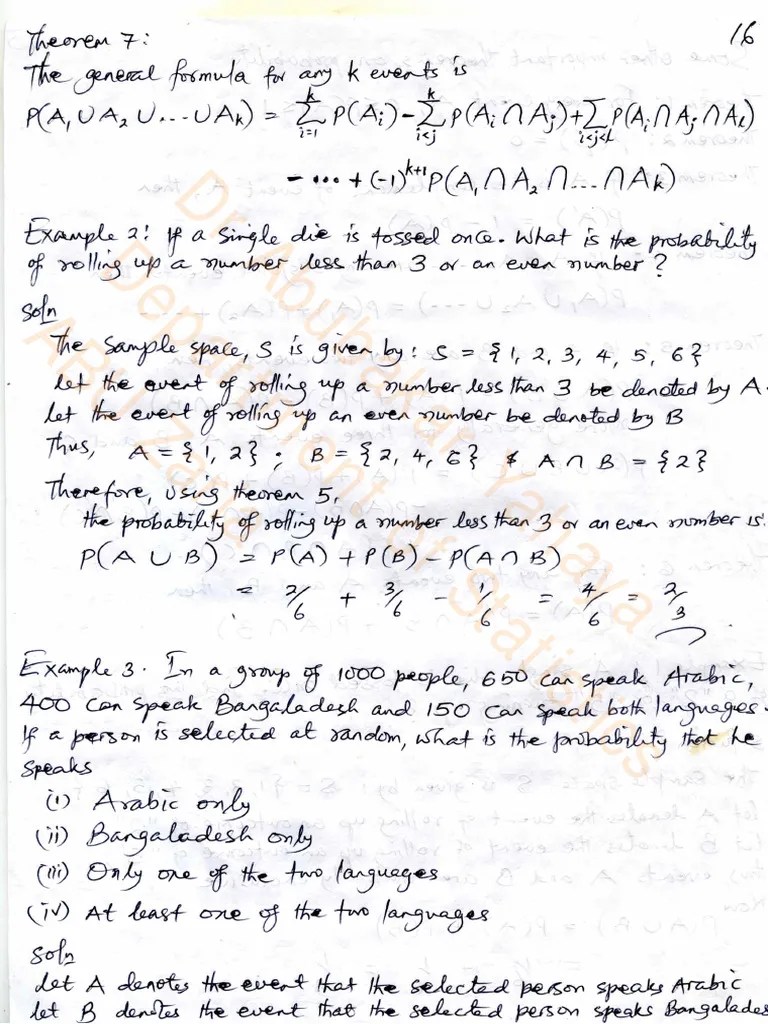 16
Theorem 7:
The general formula for any k events is
P(A₁ ∪ A₂ ∪ ... ∪ Aₖ) = Σᵢ₌₁ᵏ P(Aᵢ) - Σᵢ<ⱼᵏ P(Aᵢ ∩ Aⱼ) + Σᵢ<ⱼ<ₗ P(Aᵢ ∩ Aⱼ ∩ Aₗ)
- ... + (-1)ᵏ⁺¹ P(A₁ ∩ A₂ ∩ ... ∩ Aₖ)
Example 2: If a single die is tossed once. What is the probability
of rolling up a number less than 3 or an even number?
Soln
The sample space, S is given by: S = {1, 2, 3, 4, 5, 6}
let the event of rolling up a number less than 3 be denoted by A.
let the event of rolling up an even number be denoted by B
Thus, A = {1, 2}; B = {2, 4, 6} & A ∩ B = {2}
Therefore, using theorem 5,
the probability of rolling up a number less than 3 or an even number is:
P(A ∪ B) = P(A) + P(B) - P(A ∩ B)
= 2/6 + 3/6 - 1/6 = 4/6 = 2/3
Example 3. In a group of 1000 people, 650 can speak Arabic,
400 can speak Bangaladesh and 150 can speak both languages.
If a person is selected at random, what is the probability that he
speaks
(i) Arabic only
(ii) Bangaladesh only
(iii) Only one of the two languages
(iv) At least one of the two languages
Soln
Let A denotes the event that the selected person speaks Arabic
let B denotes the event that the selected person speaks Bangalades
Dr. Abubakar Yahaya
Department of Statistics
ABU Zaria